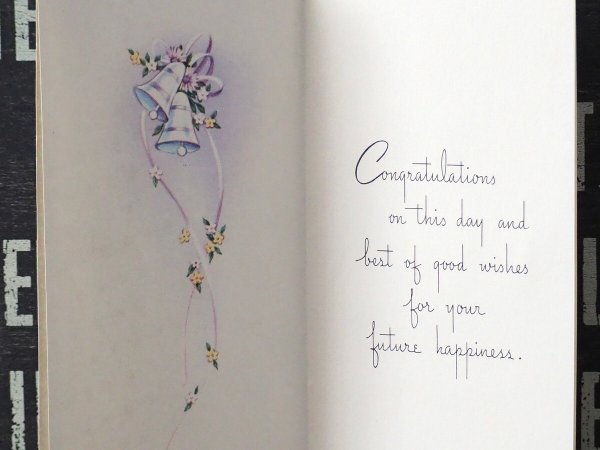 Congratulations
on this day and
best of good wishes
for your
future happiness.